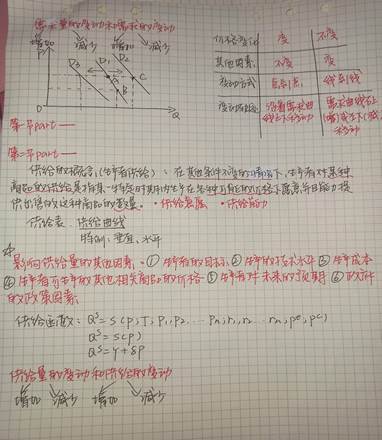 需求量的变动和需求的变动
增加 减少 增加 减少
P
D3 D1 D2
A C
B
O Q
价格变化 变 不变
其他因素 不变 变
变动方式 点到点 线到线
沿着需求曲线上下移动 需求曲线右(增)或左(减)移动
第一节part——
第二节part——
供给的概念(生产者供给):在其他条件不变的情况下,生产者对某种
商品的供给是指某一特定时期内生产者在各种可能的价格下愿意并且能力提
供出售的这种商品的数量。·供给意愿 ·供给能力
供给表、供给曲线
特例:垂直、水平
影响供给量的其他因素:①生产者的目标②生产的技术水平③生产成本
④生产者可生产的其他相关商品的价格⑤生产者对未来的预期⑥政府
的政策因素
供给函数:
Qˢ=S(P)
Qˢ=γ+δP
供给量的变动和供给的变动
增加 减少 增加 减少